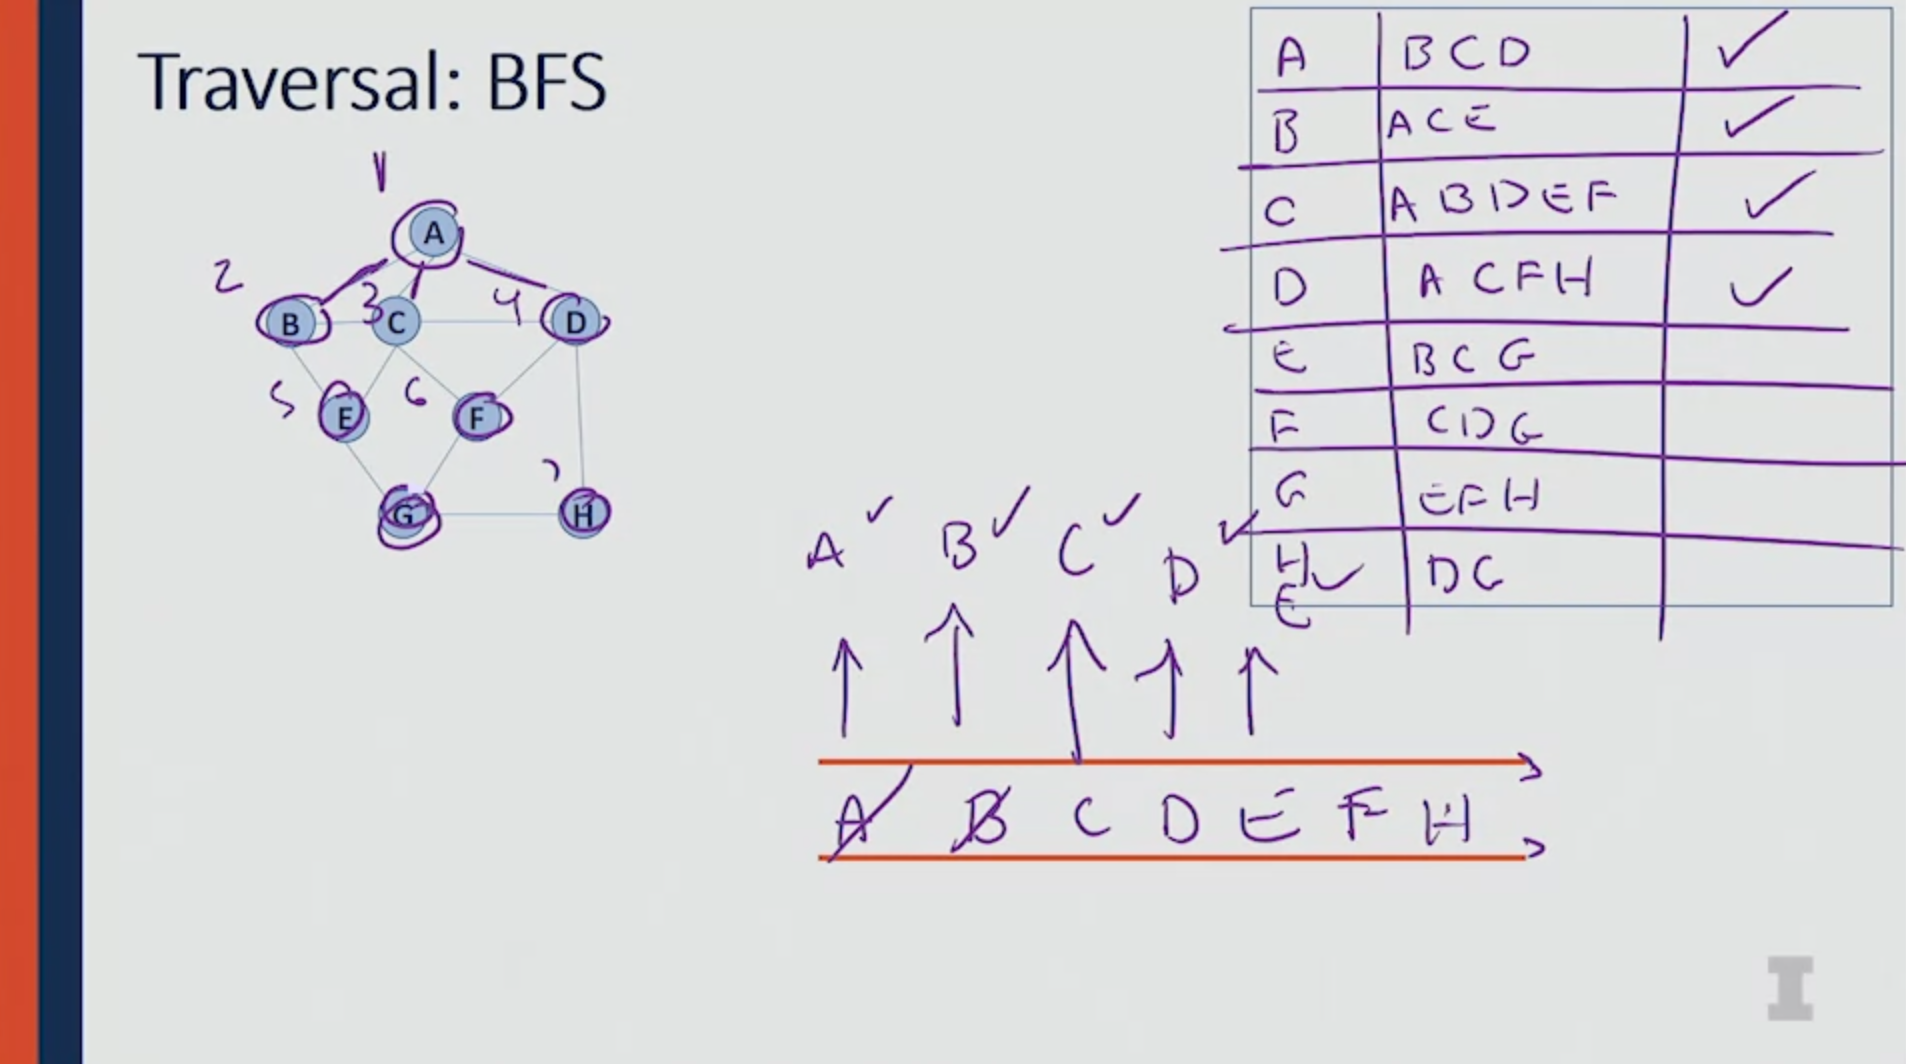 Traversal: BFS
1
A
2
B
3
C
4
D
5
E
6
F
G
H
A BCD ✓
B ACE ✓
C ABDEF ✓
D ACFH ✓
E BCG
F CDG
G EFH
H ✓ DG
A ✓ B ✓ C ✓ D ✓ E
A B C D E F H
I